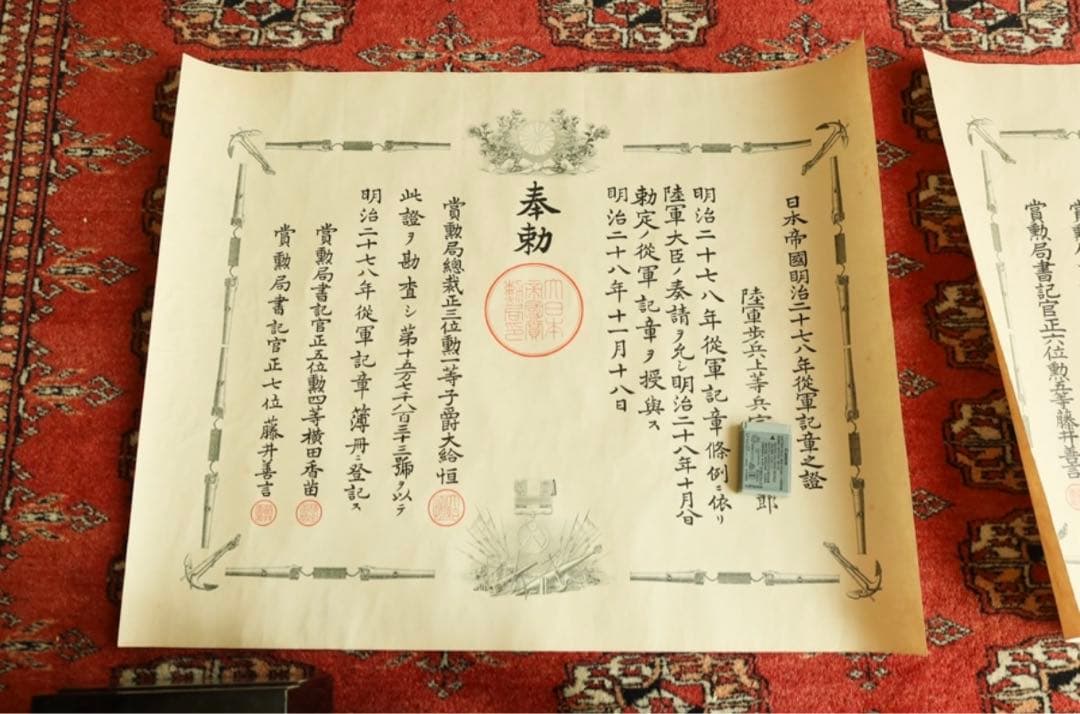 日本帝國明治二十七八年從軍記章之證
陸軍歩兵上等兵
郎
明治二十七八年從軍記章條例ニ依リ
陸軍大臣ノ奏請ヲ允シ明治二十八年十月八日
勅定ノ從軍記章ヲ授與ス
明治二十八年十一月十八日
奉勅
大日本
賞勲局總裁正三位勲一等子爵大給恒
此證ヲ勘査シ第十五万七千八百三十三號ヲ以テ
明治二十七八年從軍記章簿冊ニ登記ス
賞勲局書記官正五位勲四等横田香苗
賞勲局書記官正七位藤井善言
賞勲局書記官正六位勲五等藤井善言